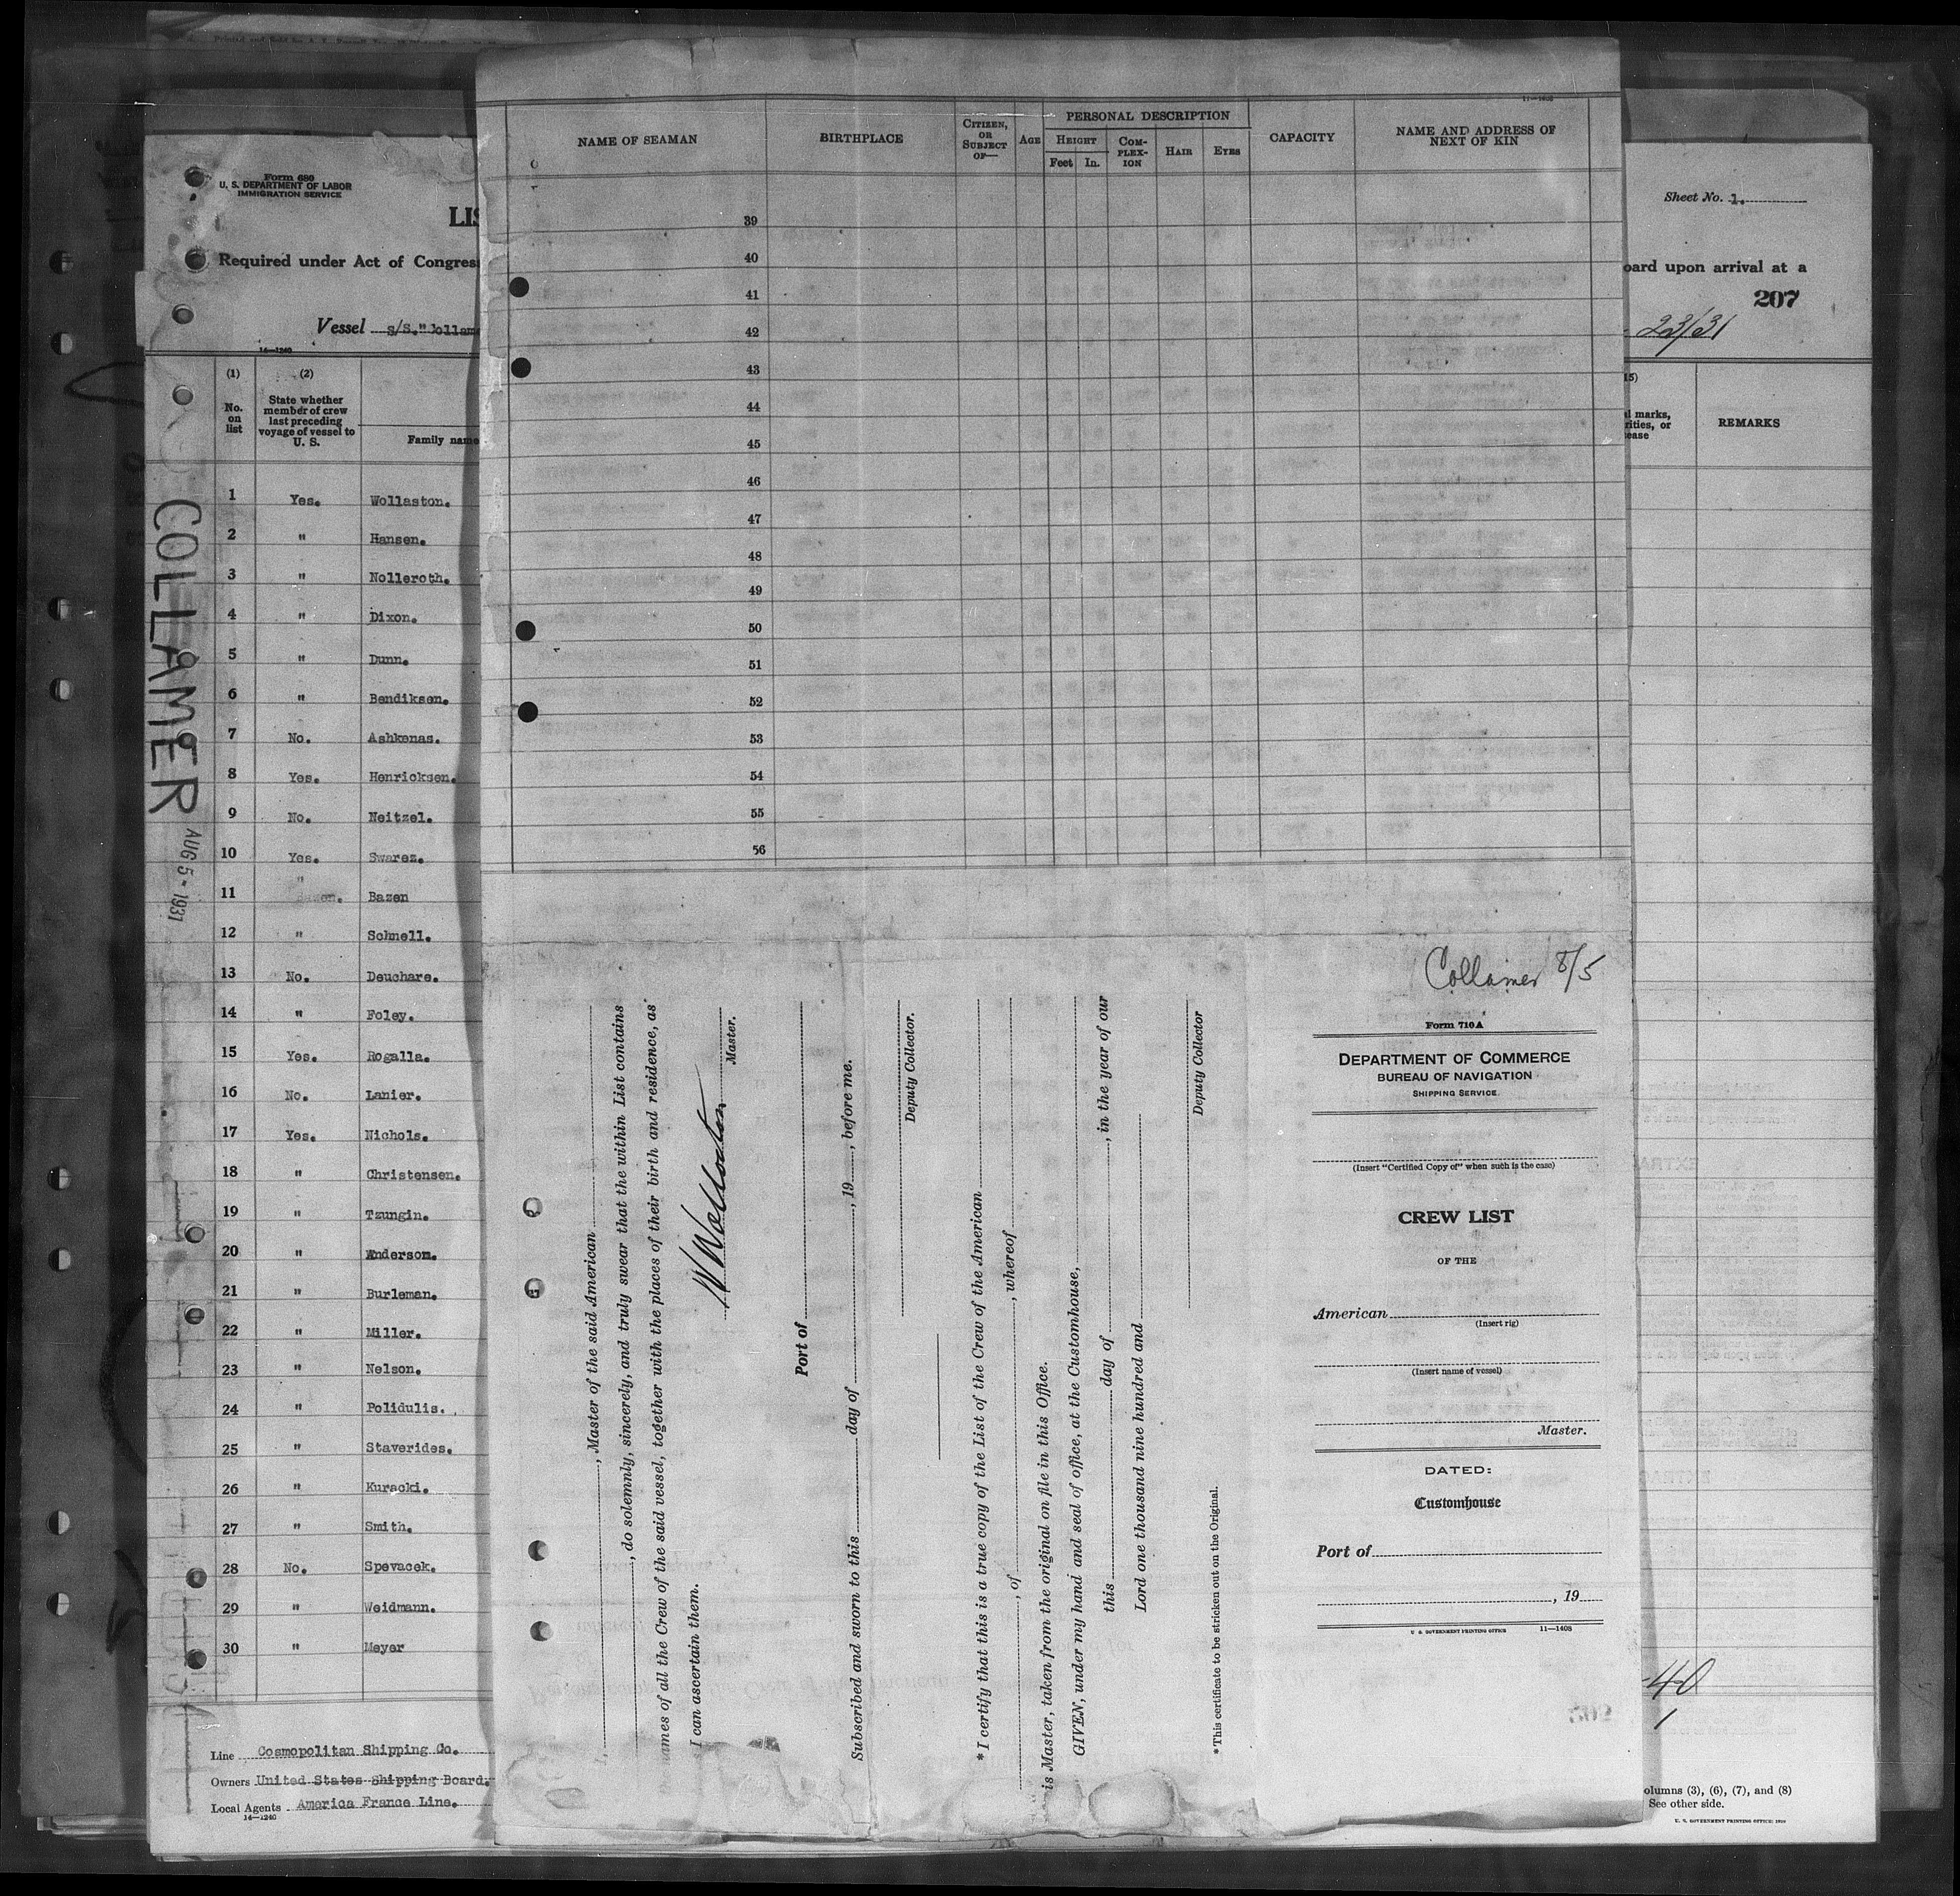 Form 680
U. S. DEPARTMENT OF LABOR
IMMIGRATION SERVICE
LIS
Required under Act of Congres
Vessel S/S."Collam
14—1240
(1)
No. on list
(2)
State whether member of crew last preceding voyage of vessel to U. S.
Family name
1 Yes. Wollaston.
2 " Hansen.
3 " Nolleroth.
4 " Dixon.
5 " Dunn.
6 " Bendiksen.
7 No. Ashkenas.
8 Yes. Henricksen.
9 No. Neitzel.
10 Yes. Swarez.
11 " Bazen
12 " Schnell.
13 No. Deuchare.
14 " Foley.
15 Yes. Rogalla.
16 No. Lanier.
17 Yes. Nichols.
18 " Christensen.
19 " Tzungin.
20 " Anderson.
21 " Burleman.
22 " Miller.
23 " Nelson.
24 " Polidulis.
25 " Staverides.
26 " Kuracki.
27 " Smith.
28 No. Spevacek.
29 " Weidmann.
30 " Meyer
Line Cosmopolitan Shipping Co.
Owners United States Shipping Board.
Local Agents America France Line.
14—1240
COLLAMER
AUG 5 - 1931
11—1408
NAME OF SEAMAN
BIRTHPLACE
CITIZEN, OR SUBJECT OF—
AGE
PERSONAL DESCRIPTION
HEIGHT
Feet In.
COM-PLEX-ION
HAIR
EYES
CAPACITY
NAME AND ADDRESS OF NEXT OF KIN
39
40
41
42
43
44
45
46
47
48
49
50
51
52
53
54
55
56
, Master of the said American
, do solemnly, sincerely, and truly swear that the within List contains
names of all the Crew of the said vessel, together with the places of their birth and residence, as
I can ascertain them.
W Wollaston
Master.
Port of
Subscribed and sworn to this day of , 19 , before me.
Deputy Collector.
*I certify that this is a true copy of the List of the Crew of the American
, of , whereof
is Master, taken from the original on file in this Office.
GIVEN, under my hand and seal of office, at the Customhouse,
this day of , in the year of our
Lord one thousand nine hundred and
Deputy Collector
*This certificate to be stricken out on the Original.
Collamer 8/5
Form 710A
DEPARTMENT OF COMMERCE
BUREAU OF NAVIGATION
SHIPPING SERVICE
(Insert "Certified Copy of" when such is the case)
CREW LIST
OF THE
American
(Insert rig)
(Insert name of vessel)
Master.
DATED:
Customhouse
Port of
, 19
U. S. GOVERNMENT PRINTING OFFICE 11—1408
Sheet No. 1.
oard upon arrival at a
207
23/31
15)
l marks,
rities, or
ease
REMARKS
40
1
olumns (3), (6), (7), and (8)
See other side.
U. S. GOVERNMENT PRINTING OFFICE: 1929